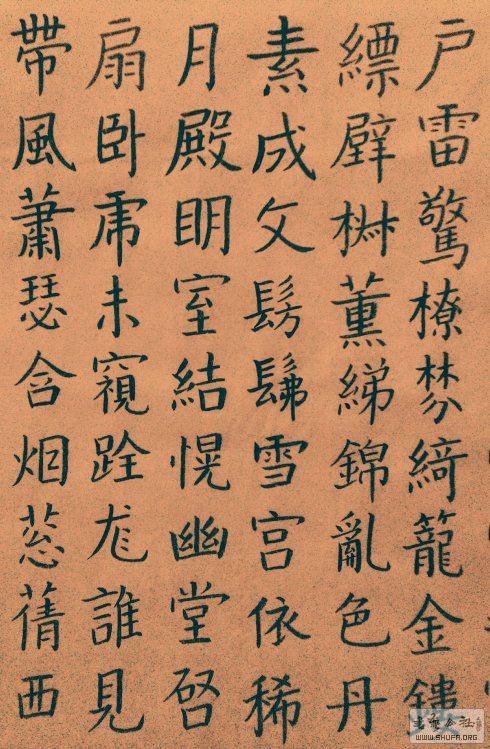 户雷驚橑棼綺籠金鏤
縹壁椒薰綈錦亂色丹
素成文髣髴雪宮依稀
月殿明室結幌幽堂啓
扇卧虎未窺跧尨誰見
帶風蕭瑟含烟葱蒨西
WWW.SHUFA.ORG